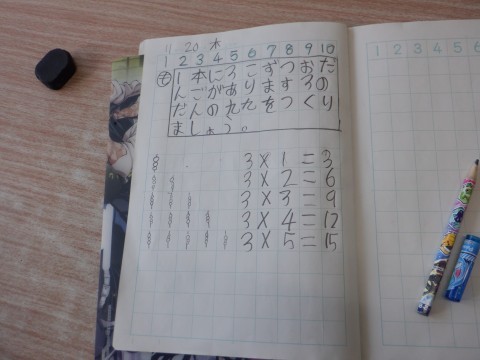 11 20 木
1 2 3 4 5 6 7 8 9 10
1 2 3 4 5 6
も 1本に3こずつおだ
んごがあります。3の
だんの九九をつくり
ましょう。
3×1=3
3×2=6
3×3=9
3×4=12
3×5=15